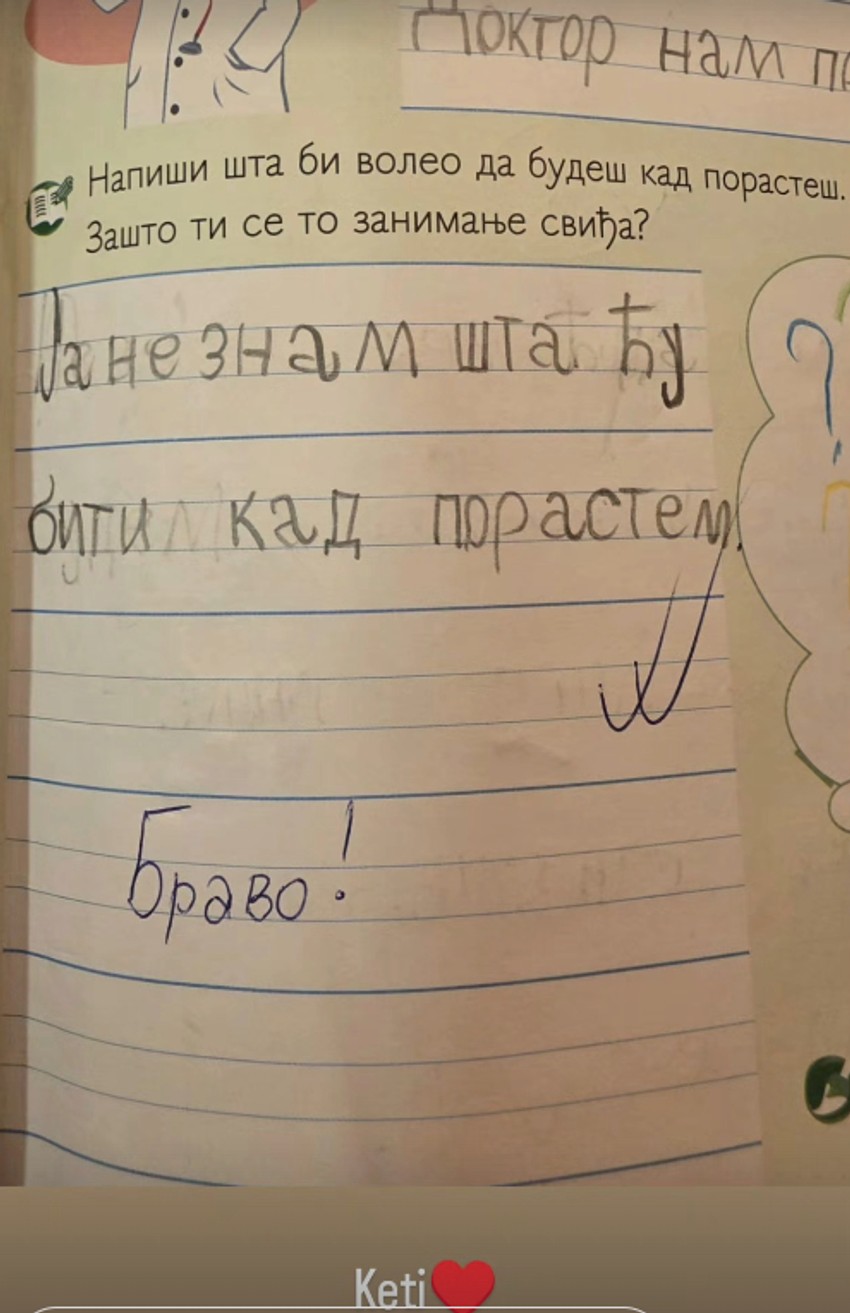 Доктор нам
Напиши шта би волео да будеш кад порастеш.
Зашто ти се то занимање свиђа?
Ја не знам шта ћу
бити кад порастем.
Браво!
Keti❤️